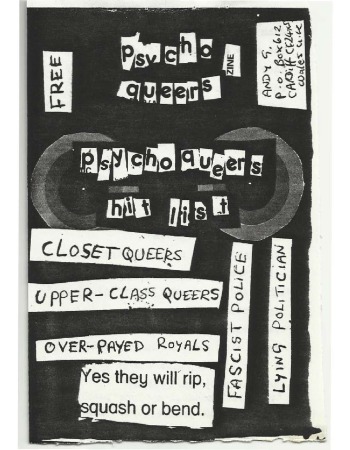 FREE
psycho
queers
ZINE
ANDY G,
P.O. BOX 612
CARDIFF CF2
WALES U.K
psychoqueers
hit list
CLOSET QUEERS
UPPER-CLASS QUEERS
OVER-PAYED ROYALS
FASCIST POLICE
LYING POLITICIAN
Yes they will rip,
squash or bend.